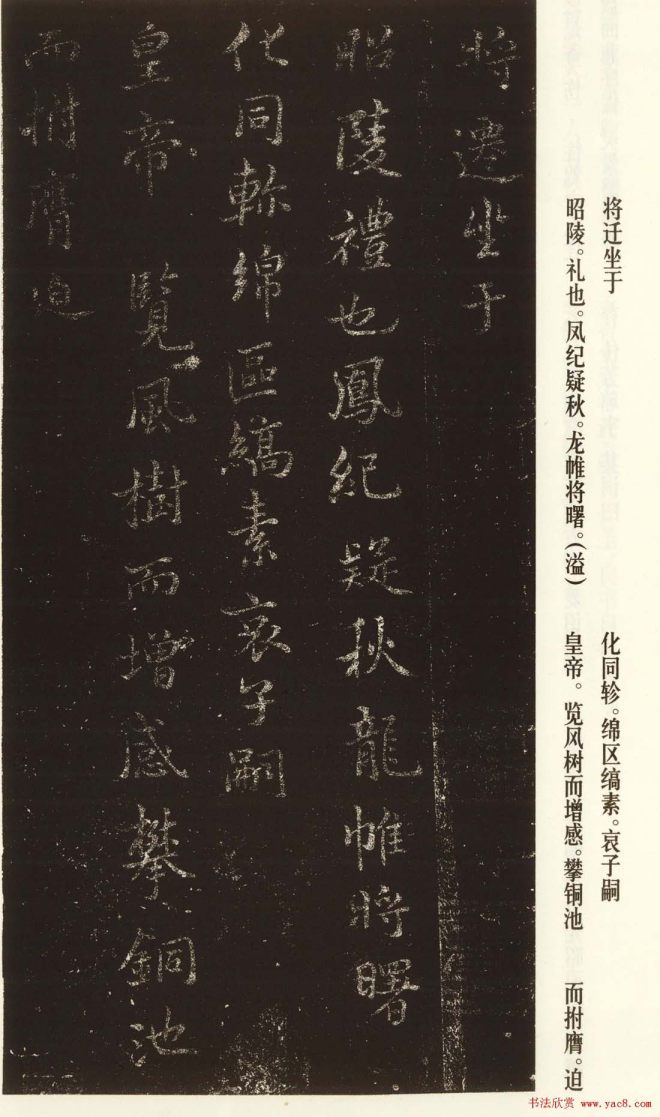 将迁坐于
昭陵。礼也。凤纪疑秋。龙帷将曙。(溢)
化同轸。绵区缟素。哀子嗣
皇帝。览风树而增感。攀铜池
而拊膺。迫
將遷坐于
昭陵禮也鳳紀疑秋龍帷將曙
化同軫綿區縞素哀子嗣
皇帝覽風樹而增感攀銅池
而拊膺迫
书法欣赏 www.yac8.com